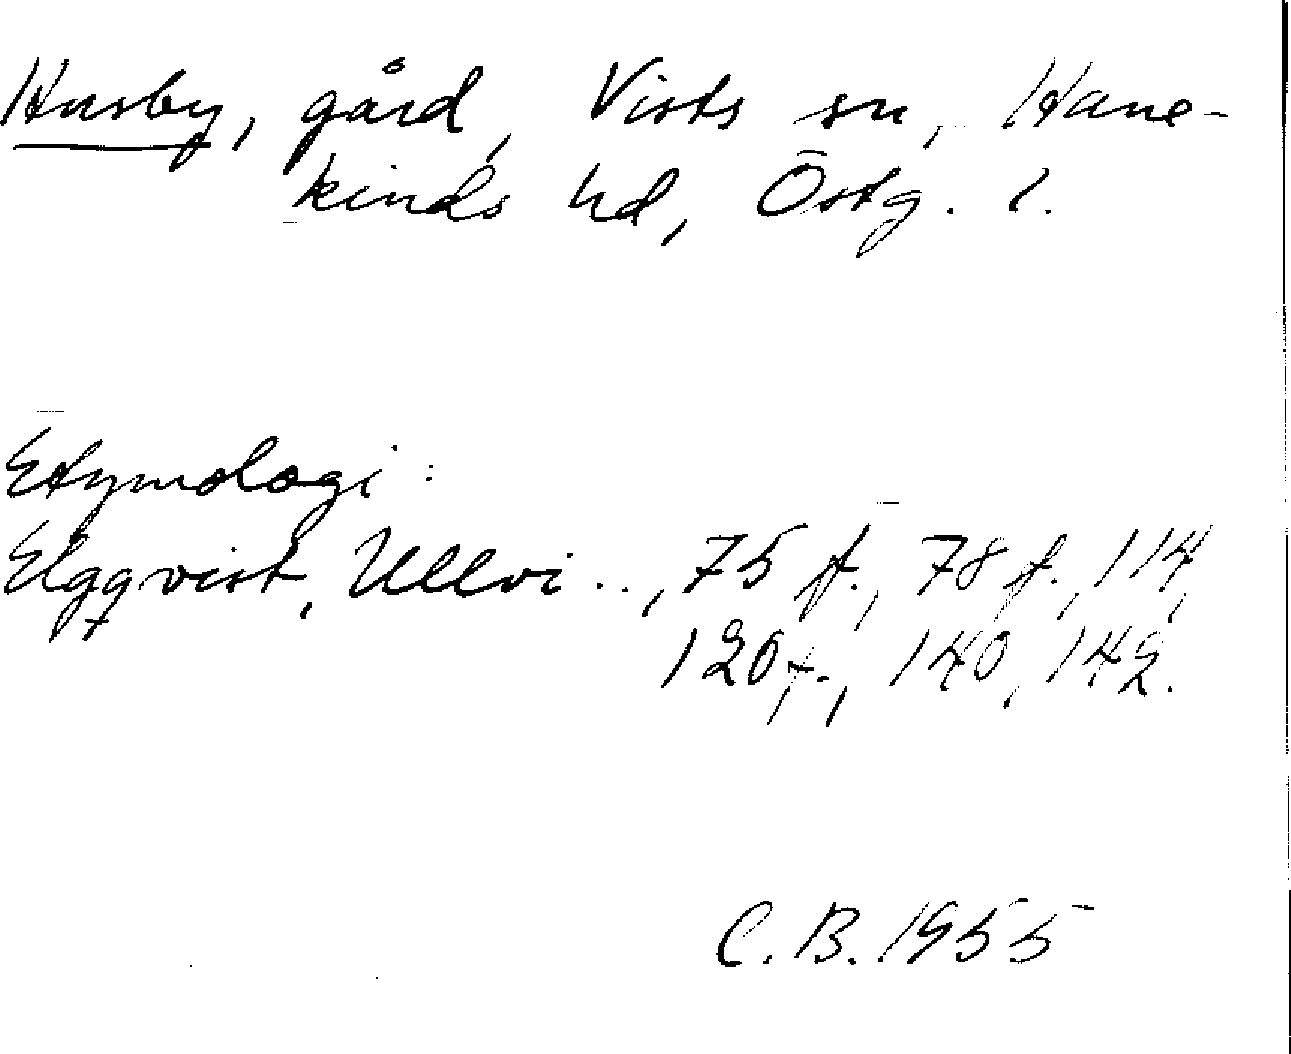 Husby, gård, Vists sn, Hane-
kinds hd, Östg. l.
Etymologi:
Elgqvist, Ullvi .., 75 ff., 78 f., 114,
120 f., 140, 142.
C. B. 1955